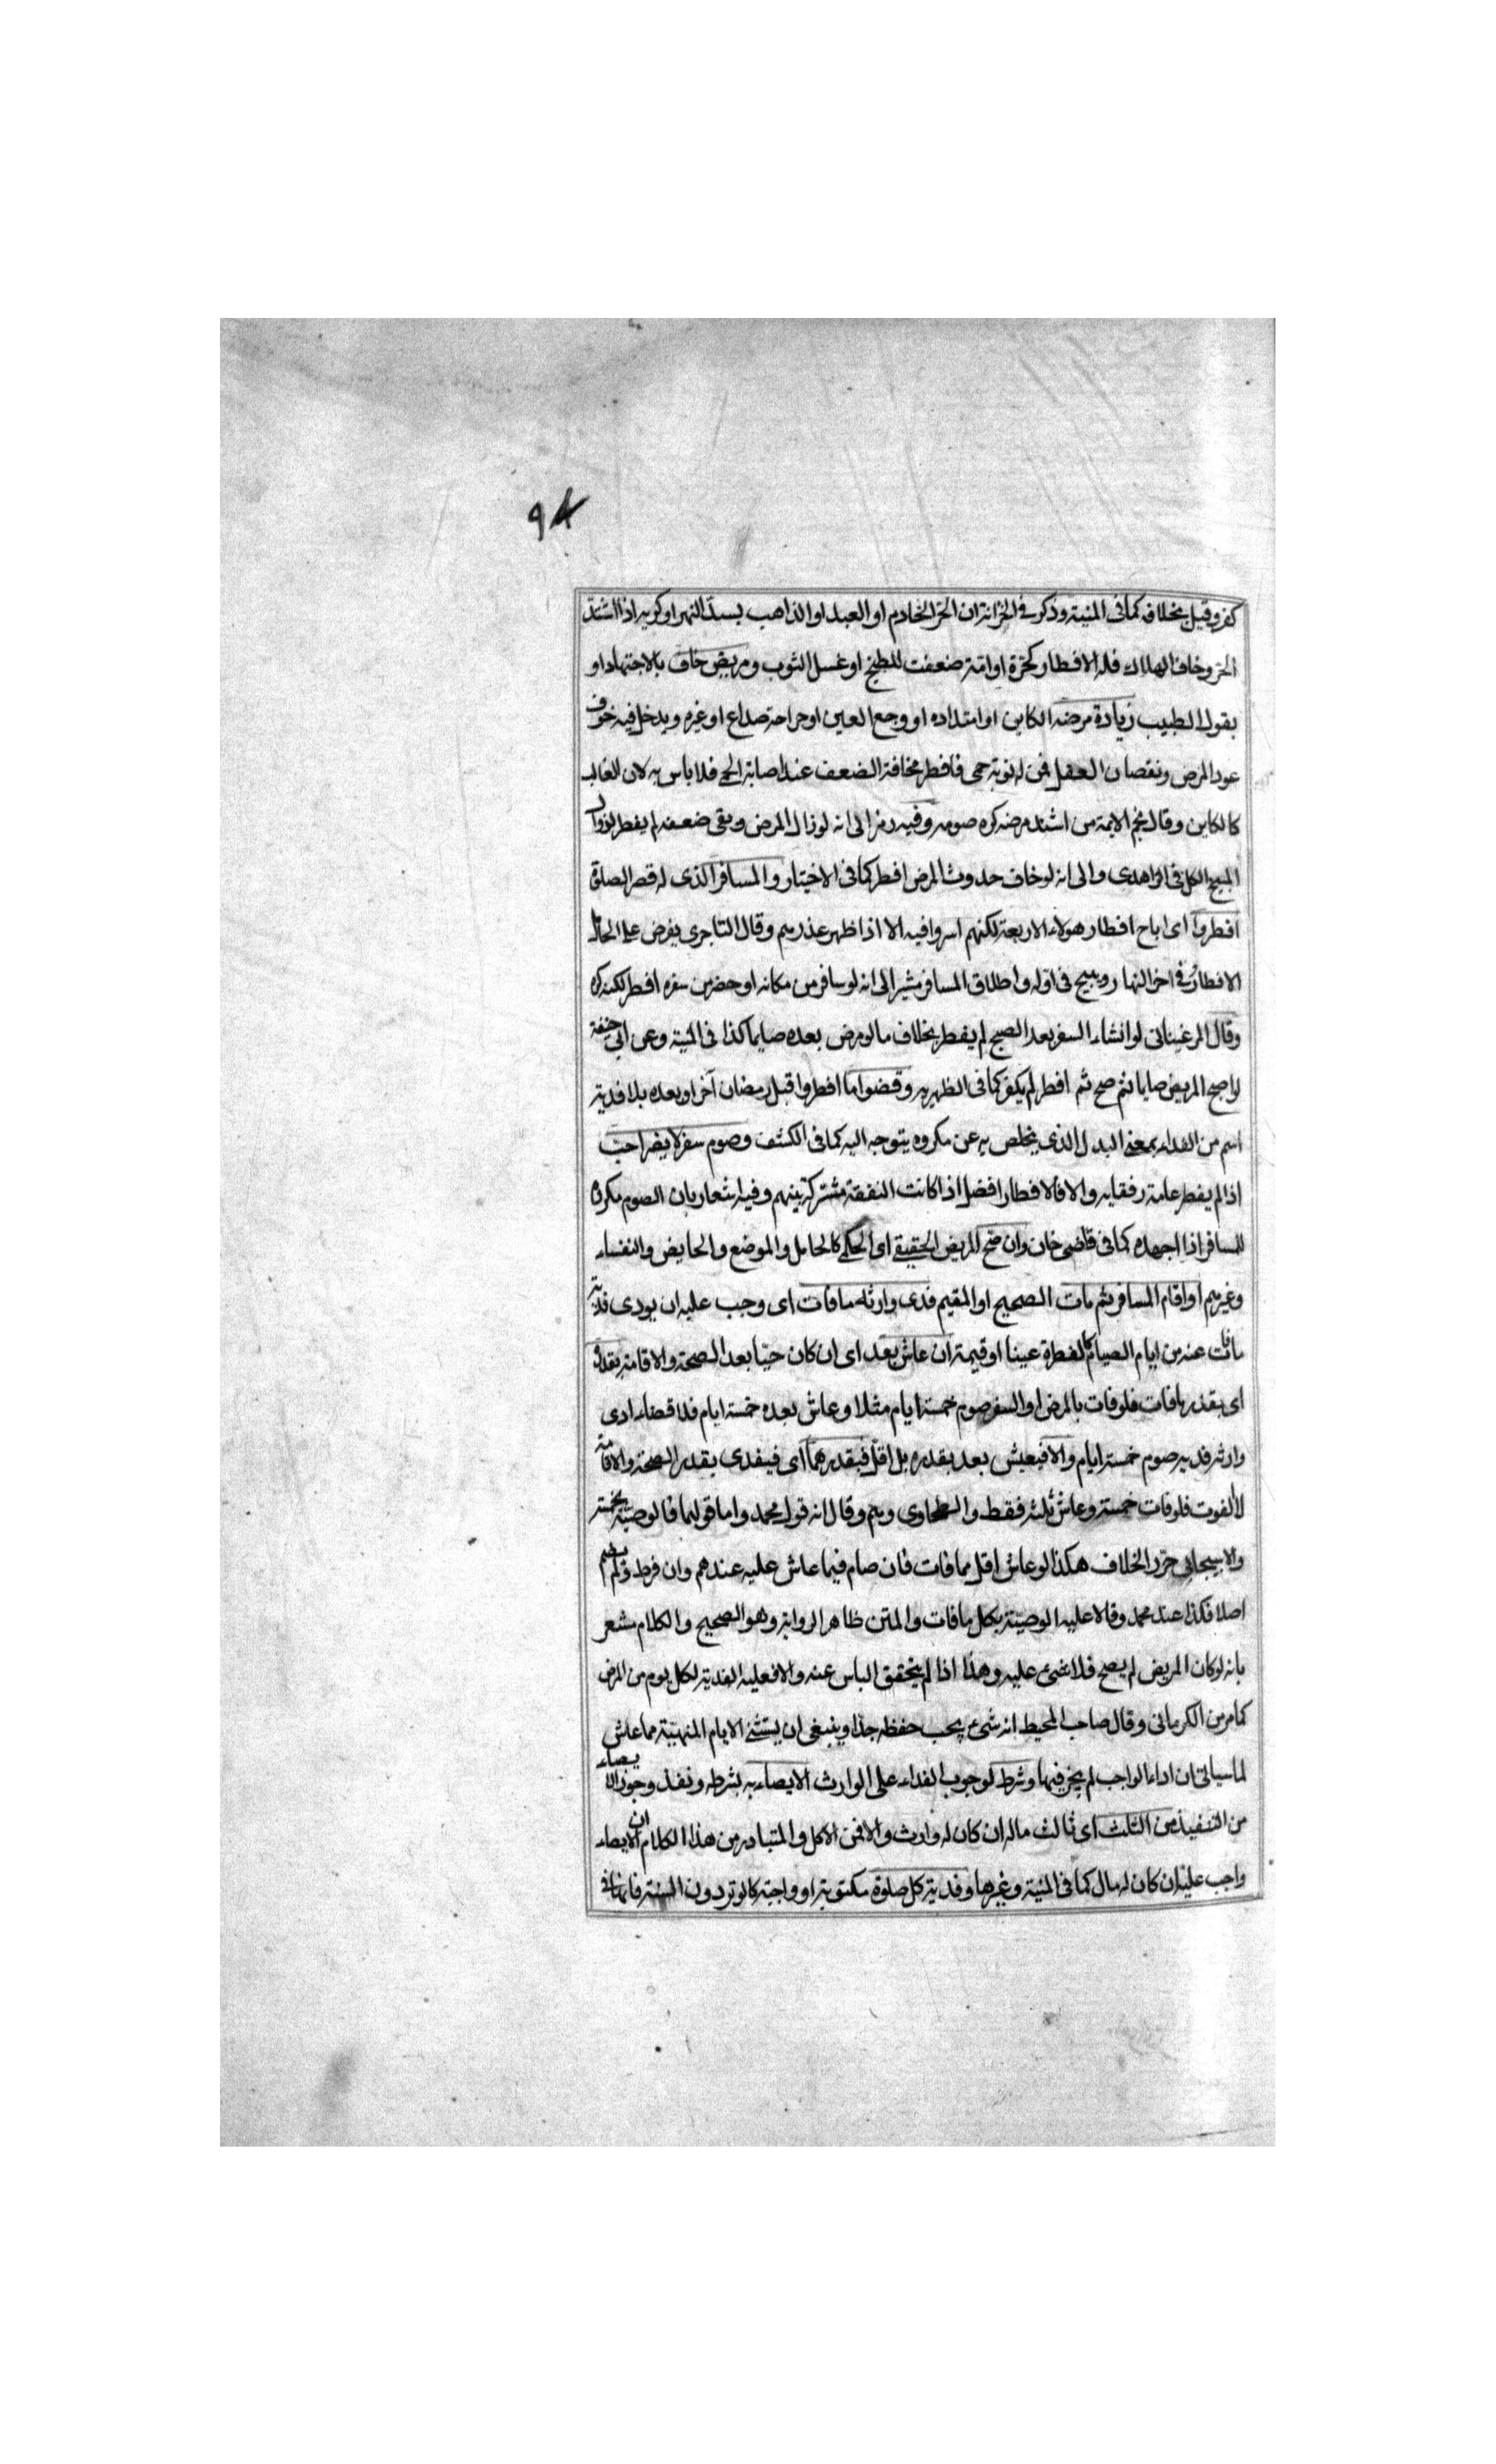 ۹۴
كفر وقيل بخلافه كما فى المنية وذكر فى الخزانة ان الحر الخادم او العبد او الذاهب لسد النهر او كريه اذا اشتد
الحر وخاف الهلاك فله الافطار كحرة او امة ضعفت للطبخ او غسل الثوب ومريض خاف بالاجتهاد او
بقول الطبيب زيادة مرضه الكاين او امتداده او وجع العين او جراحة صداع او غيره ويدخل فيه خوف
عود المرض ونقصان العقل فمن له نوبة حمى فافطر مخافة الضعف عند اصابة الحمى فلا باس به لان الغالب
كالكاين وقال نجم الايمة من اشتد مرضه كره صومه وفيه رمز الى انه لو زال المرض وبقى ضعفه لم يفطر لزوال
المبيح الكل فى الزاهدى والى انه لو خاف حدوث المرض افطر كما فى الاختيار والمسافر الذى له قصر الصلوة
افطروا اى اباح افطار هولاء الاربعة لكنهم اسروا فيه الا اذا ظهر عذرهم وقال التاجرى يفرض على الحال
الافطار فى اخر النهار ويبيح فى اوله واطلاق المسافر مشير الى انه لو سافر من مكانه او حضر من سفره افطر لكنه كره
وقال المرغينانى لو انشاء السفر بعد الصبح لم يفطر بخلاف ما لو مرض بعده صايما كذا فى المنية وعن ابى حنيفة
لو اصبح المريض صايما ثم صح ثم افطر لم يكفر كما فى الظهيريه وقضوا ما افطروا قبل رمضان آخر او بعده بلا فدية
اسم من الفداء بمعنى البدل الذى يخلص به عن مكروه يتوجه اليه كما فى الكشف وصوم سفر لا يضر احب
اذا لم يفطر عامة رفقايه والا فالافطار افضل اذا كانت النفقة مشتركة بينهم وفيه اشعار بان الصوم مكروه
للمسافر اذا اجهده كما فى قاضى خان وان صح المريض الحقيقى اى الحكمى كالحامل والموضع والحايض والنفساء
وغيرهم او اقام المسافر ثم مات الصحيح او المقيم فدى وارثه ما فات اى وجب عليه ان يودى فدية
ما فات عنه من ايام الصيام كالفطرة عينا او قيمة ان عاش بعد اى ان كان حيّا بعد الصحة والاقامة بقدره
اى بقدر ما فات فلو فات بالمرض او السفر صوم خمسة ايام مثلا وعاش بعده خمسة ايام فلا قضاء ادى
وارثه فديه صوم خمسة ايام والا فيعيش بعد بقدره بل اقل فبقدرهما اى فيفدى بقدر الصحة والاقامة
لا الفوت فلو فات خمسة وعاش ثلثه فقط والطحاوى وهم وقال انه قول محمد واما قولهما فالوصيّة بخمسة
والاسبيجابى حرّر الخلاف هكذا لو عاش اقل مما فات فان صام فيما عاش عليه عندهم وان فرط ولم يصم
اصلا فكذا عند محمد وقالا عليه الوصيّة بكل ما فات والمتن ظاهر الرواية وهو الصحيح والكلام مشعر
بانه لو كان المريض لم يصح فلا شىء عليه وهذا اذا لم يتحقق الياس عنه والا فعليه الفدية لكل يوم من المرض
كما مر من الكرمانى وقال صاحب المحيط انه شىء يجب حفظه جدا وينبغى ان يستثنى الايام المنهيّة مما عاش
لما سياتى ان اداء الواجب لم يجز فيها وشرط لوجوب الفداء على الوارث الايصاء به بشرطه ونفذ وجوز الايصاء
من التنفيذ من الثلث اى ثالث ماله ان كان له وارث والا فمن الاكل والمتبادر من هذا الكلام ان الايصاء
واجب عليه ان كان له مال كما فى المنية وغيرها وفدية كل صلوة مكتوبة او واجبة كالوتر دون السنة فانها فى